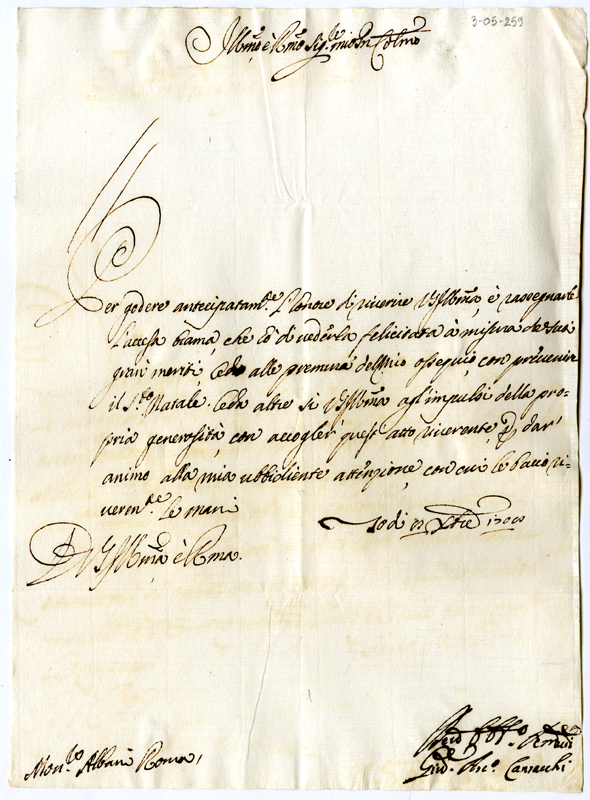 3-05-259
Illmo è Rmo Sigre mio Pn Colmo
Per godere antecipatamte l'honore di riverire VS Illma, è rassegnarle
l'accesa brama, che hò di vederla felicitata à misura de suoi
gran meriti, cedo alle premure del mio ossequio, con prevenire
il Sto Natale. Ceda altresi VS Illma agl'impulsi della pro-
pria generosità, con accoglier quest'atto riverente, p dar'
animo alla mia ubbidiente attenzione, con cui le bacio ri-
verente le mani
Xbre 1700
D VS Illma è Rma.
Monre Albani Roma,